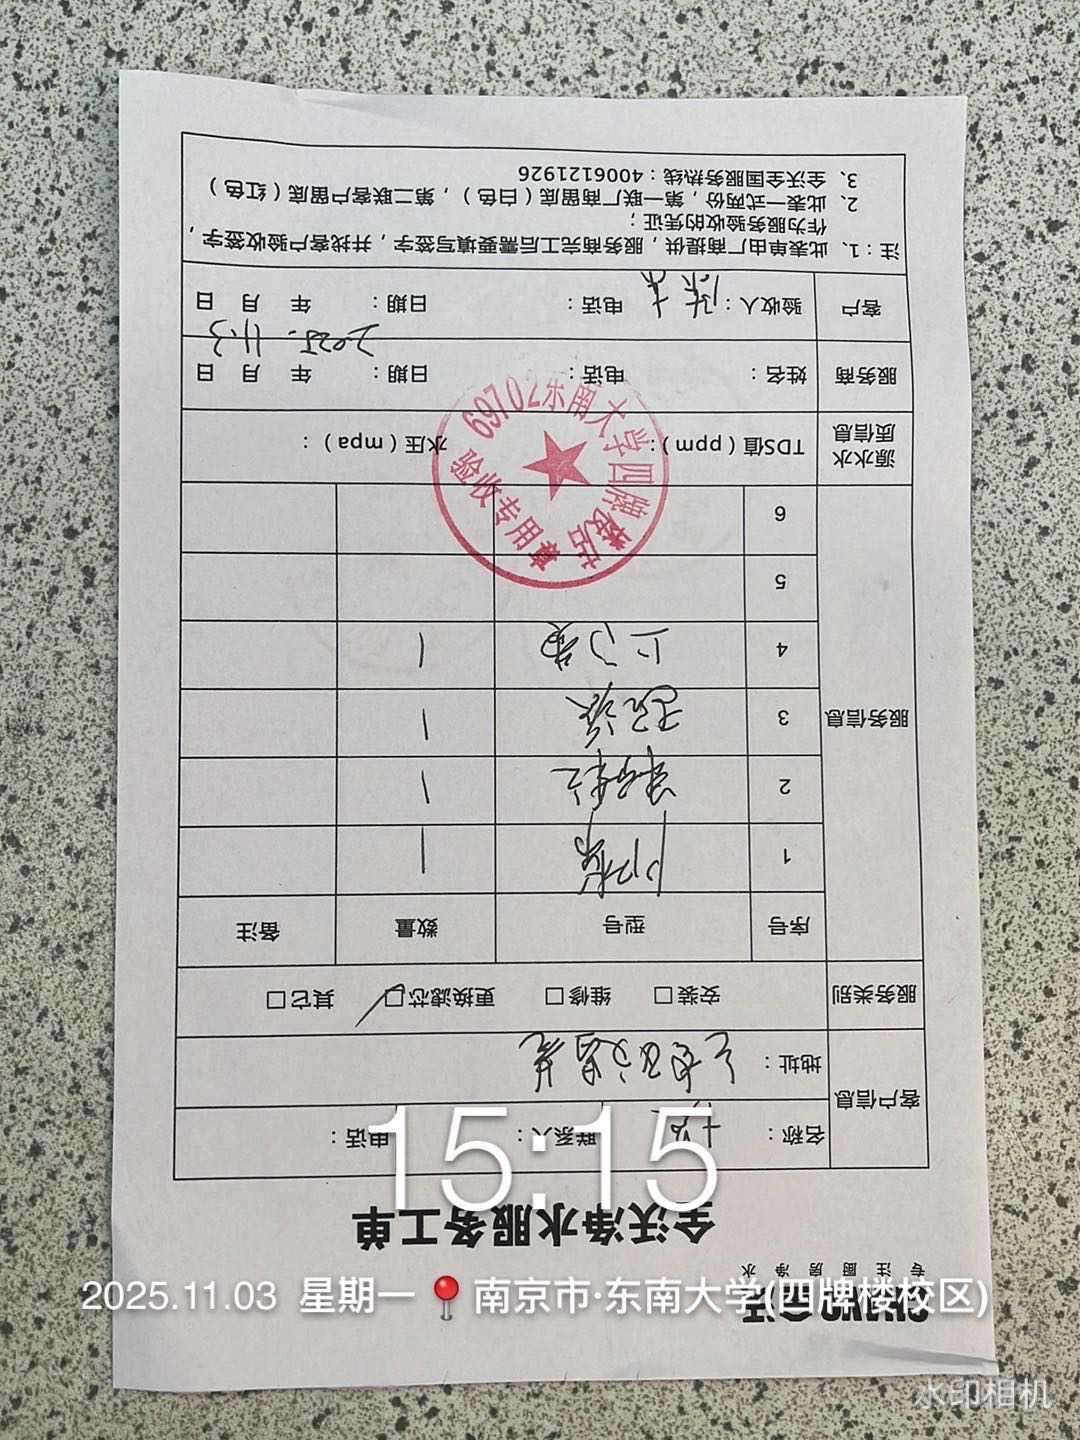 全沃
专注厨房净水
全沃净水服务工单
客户信息 名称： 联系人： 电话：
地址：
服务类别 安装□ 维修□ 更换滤芯□ 其它□
服务信息 序号 型号 数量 备注
1 1
2 1
3 1
4 上门费 1
5
6
源水水质信息 TDS值（ppm）： 水压（mpa）：
服务商 姓名： 电话： 日期： 年 月 日
2025.11.3
客户 验收人： 电话： 日期： 年 月 日
注：1、此表单由厂商提供，服务商完工后需要填写签字，并找客户验收签字，
作为服务验收的凭证；
2、此表一式两份，第一联厂商留底（白色），第二联客户留底（红色）
3、全沃全国服务热线：4006121926
69702东南大学四牌楼店
验收专用章
15:15
2025.11.03 星期一 南京市·东南大学(四牌楼校区)
水印相机